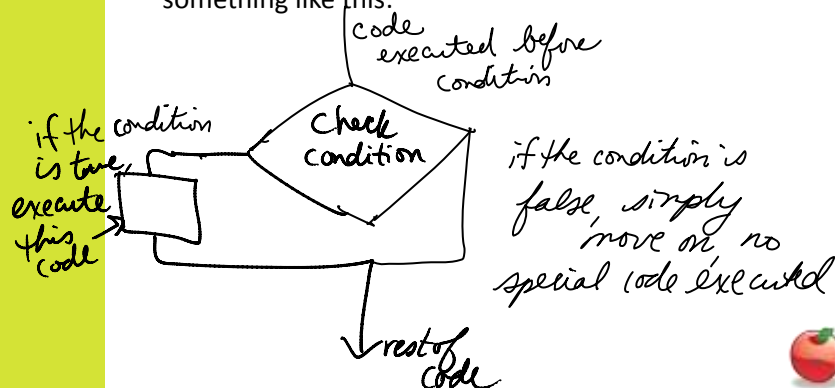 something like this:
code
executed before
condition
Check
condition
if the condition
is true,
execute
this
code
if the condition is
false, simply
move on, no
special code executed
rest of
code